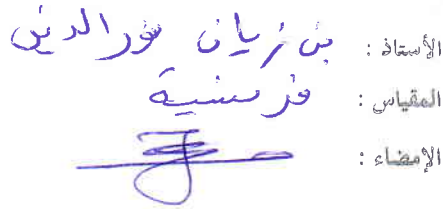 الأستاذ : بن زيان نور الدين
المقياس : فرنسية
الإمضاء :